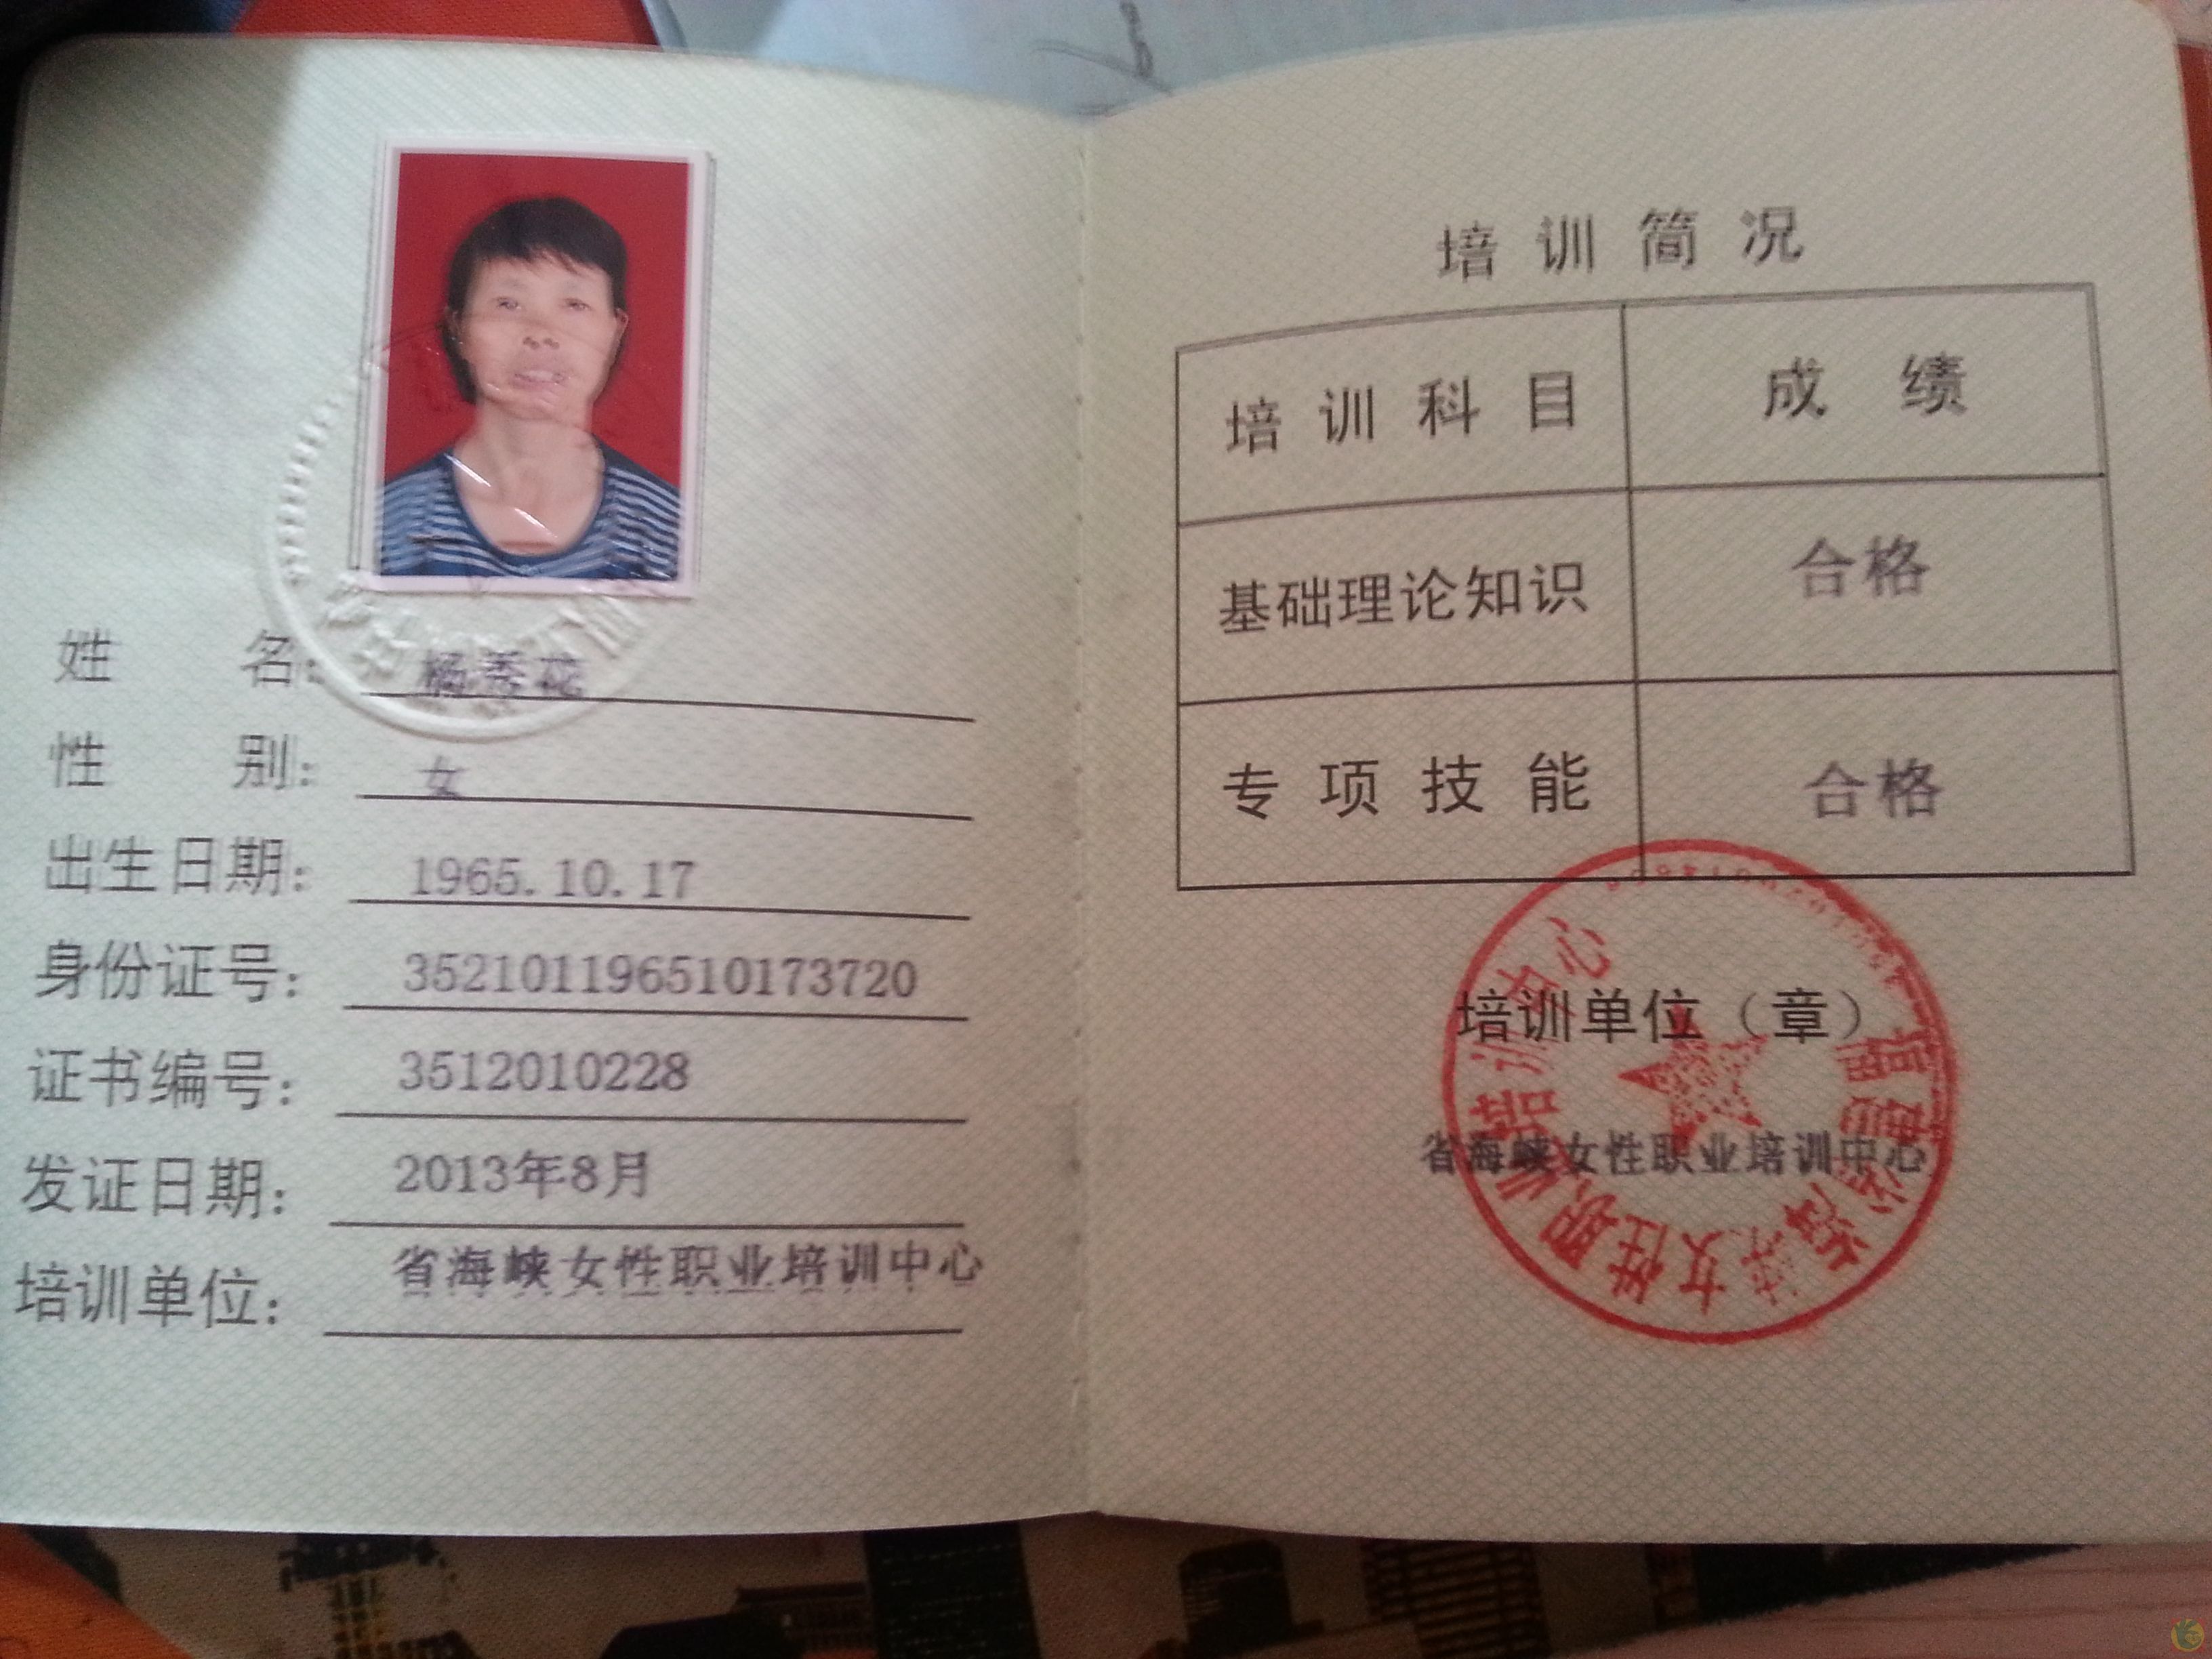 姓 名: 杨秀花
性 别: 女
出生日期: 1965.10.17
身份证号: 352101196510173720
证书编号: 3512010228
发证日期: 2013年8月
培训单位: 省海峡女性职业培训中心
培训简况
培训科目 成绩
基础理论知识 合格
专项技能 合格
培训单位（章）
省海峡女性职业培训中心
福建省海峡女性职业培训中心